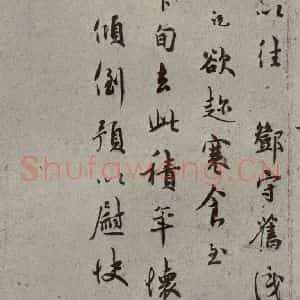 以往 鄧守舊識
迄欲趁寒食至
下旬去此積年懷
傾倒預以慰快
Shufawang.CN